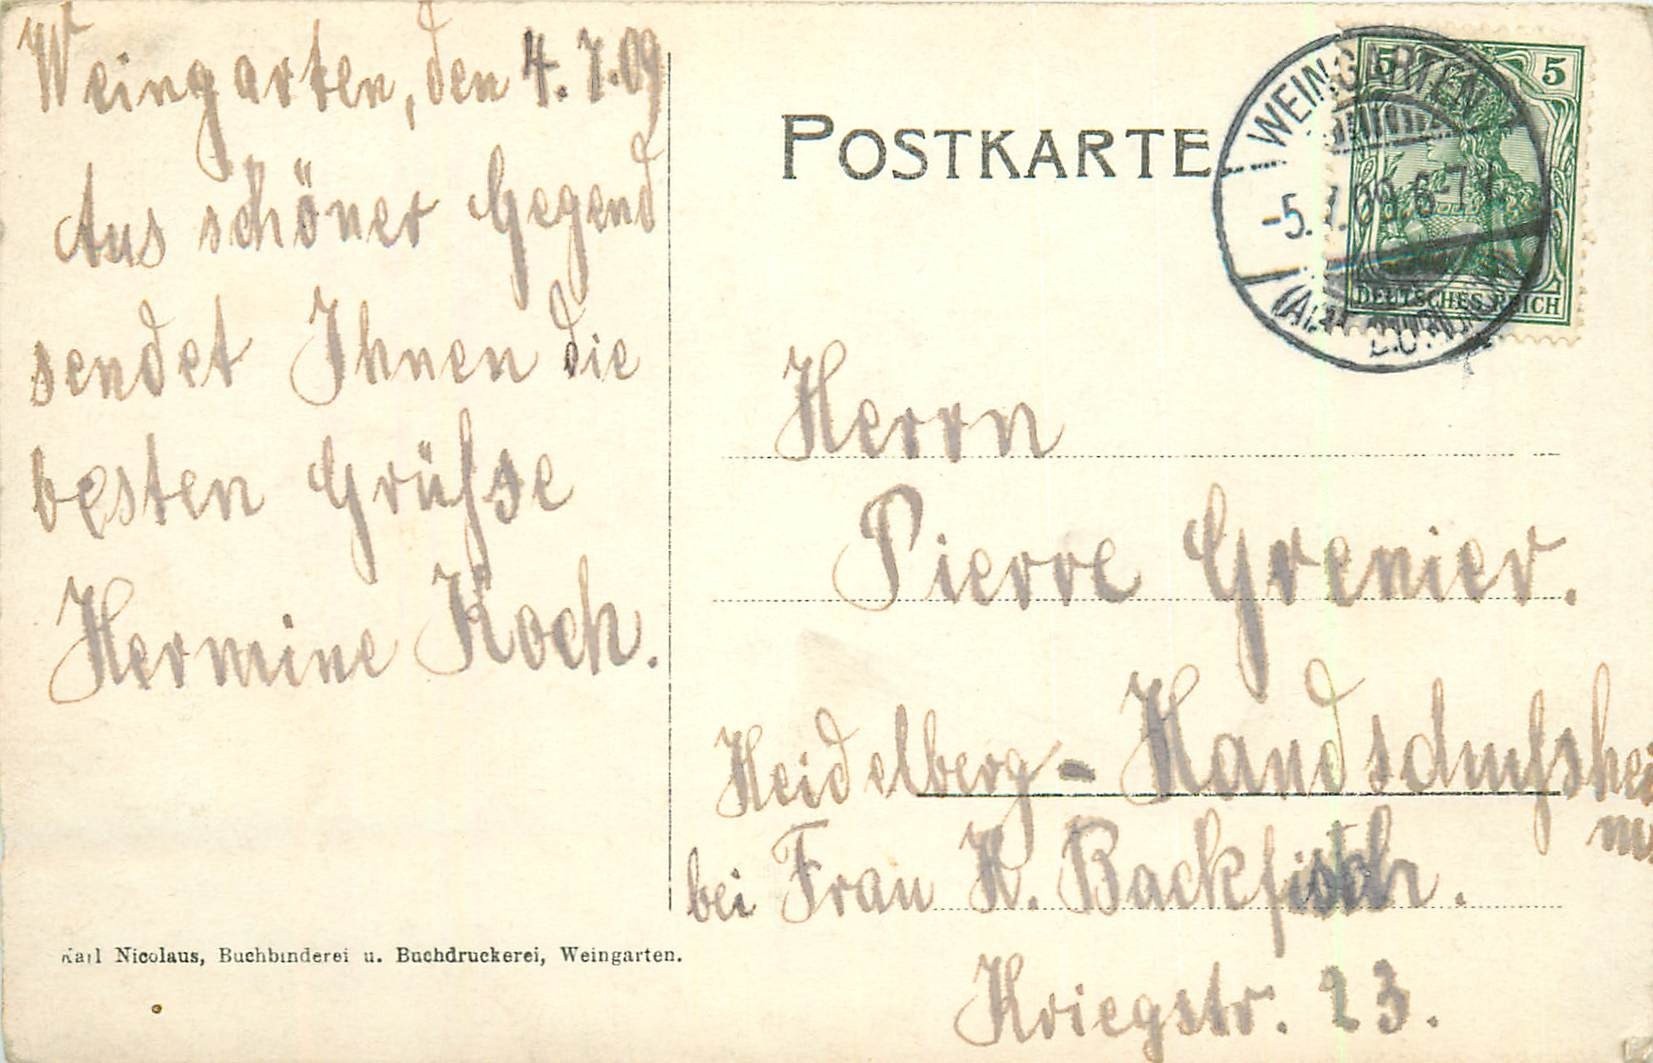 Weingarten, den 4. 7. 09
Aus schöner Gegend
sendet Ihnen die
besten Grüsse
Hermine Koch.
Karl Nicolaus, Buchbinderei u. Buchdruckerei, Weingarten.
POSTKARTE
5 5
DEUTSCHES REICH
WEINGARTEN
-5. 7. 09. 6-7
Herrn
Pierre Grenier.
Heidelberg - Handschuhsheim
bei Frau K. Backfisch.
Kriegstr. 23.